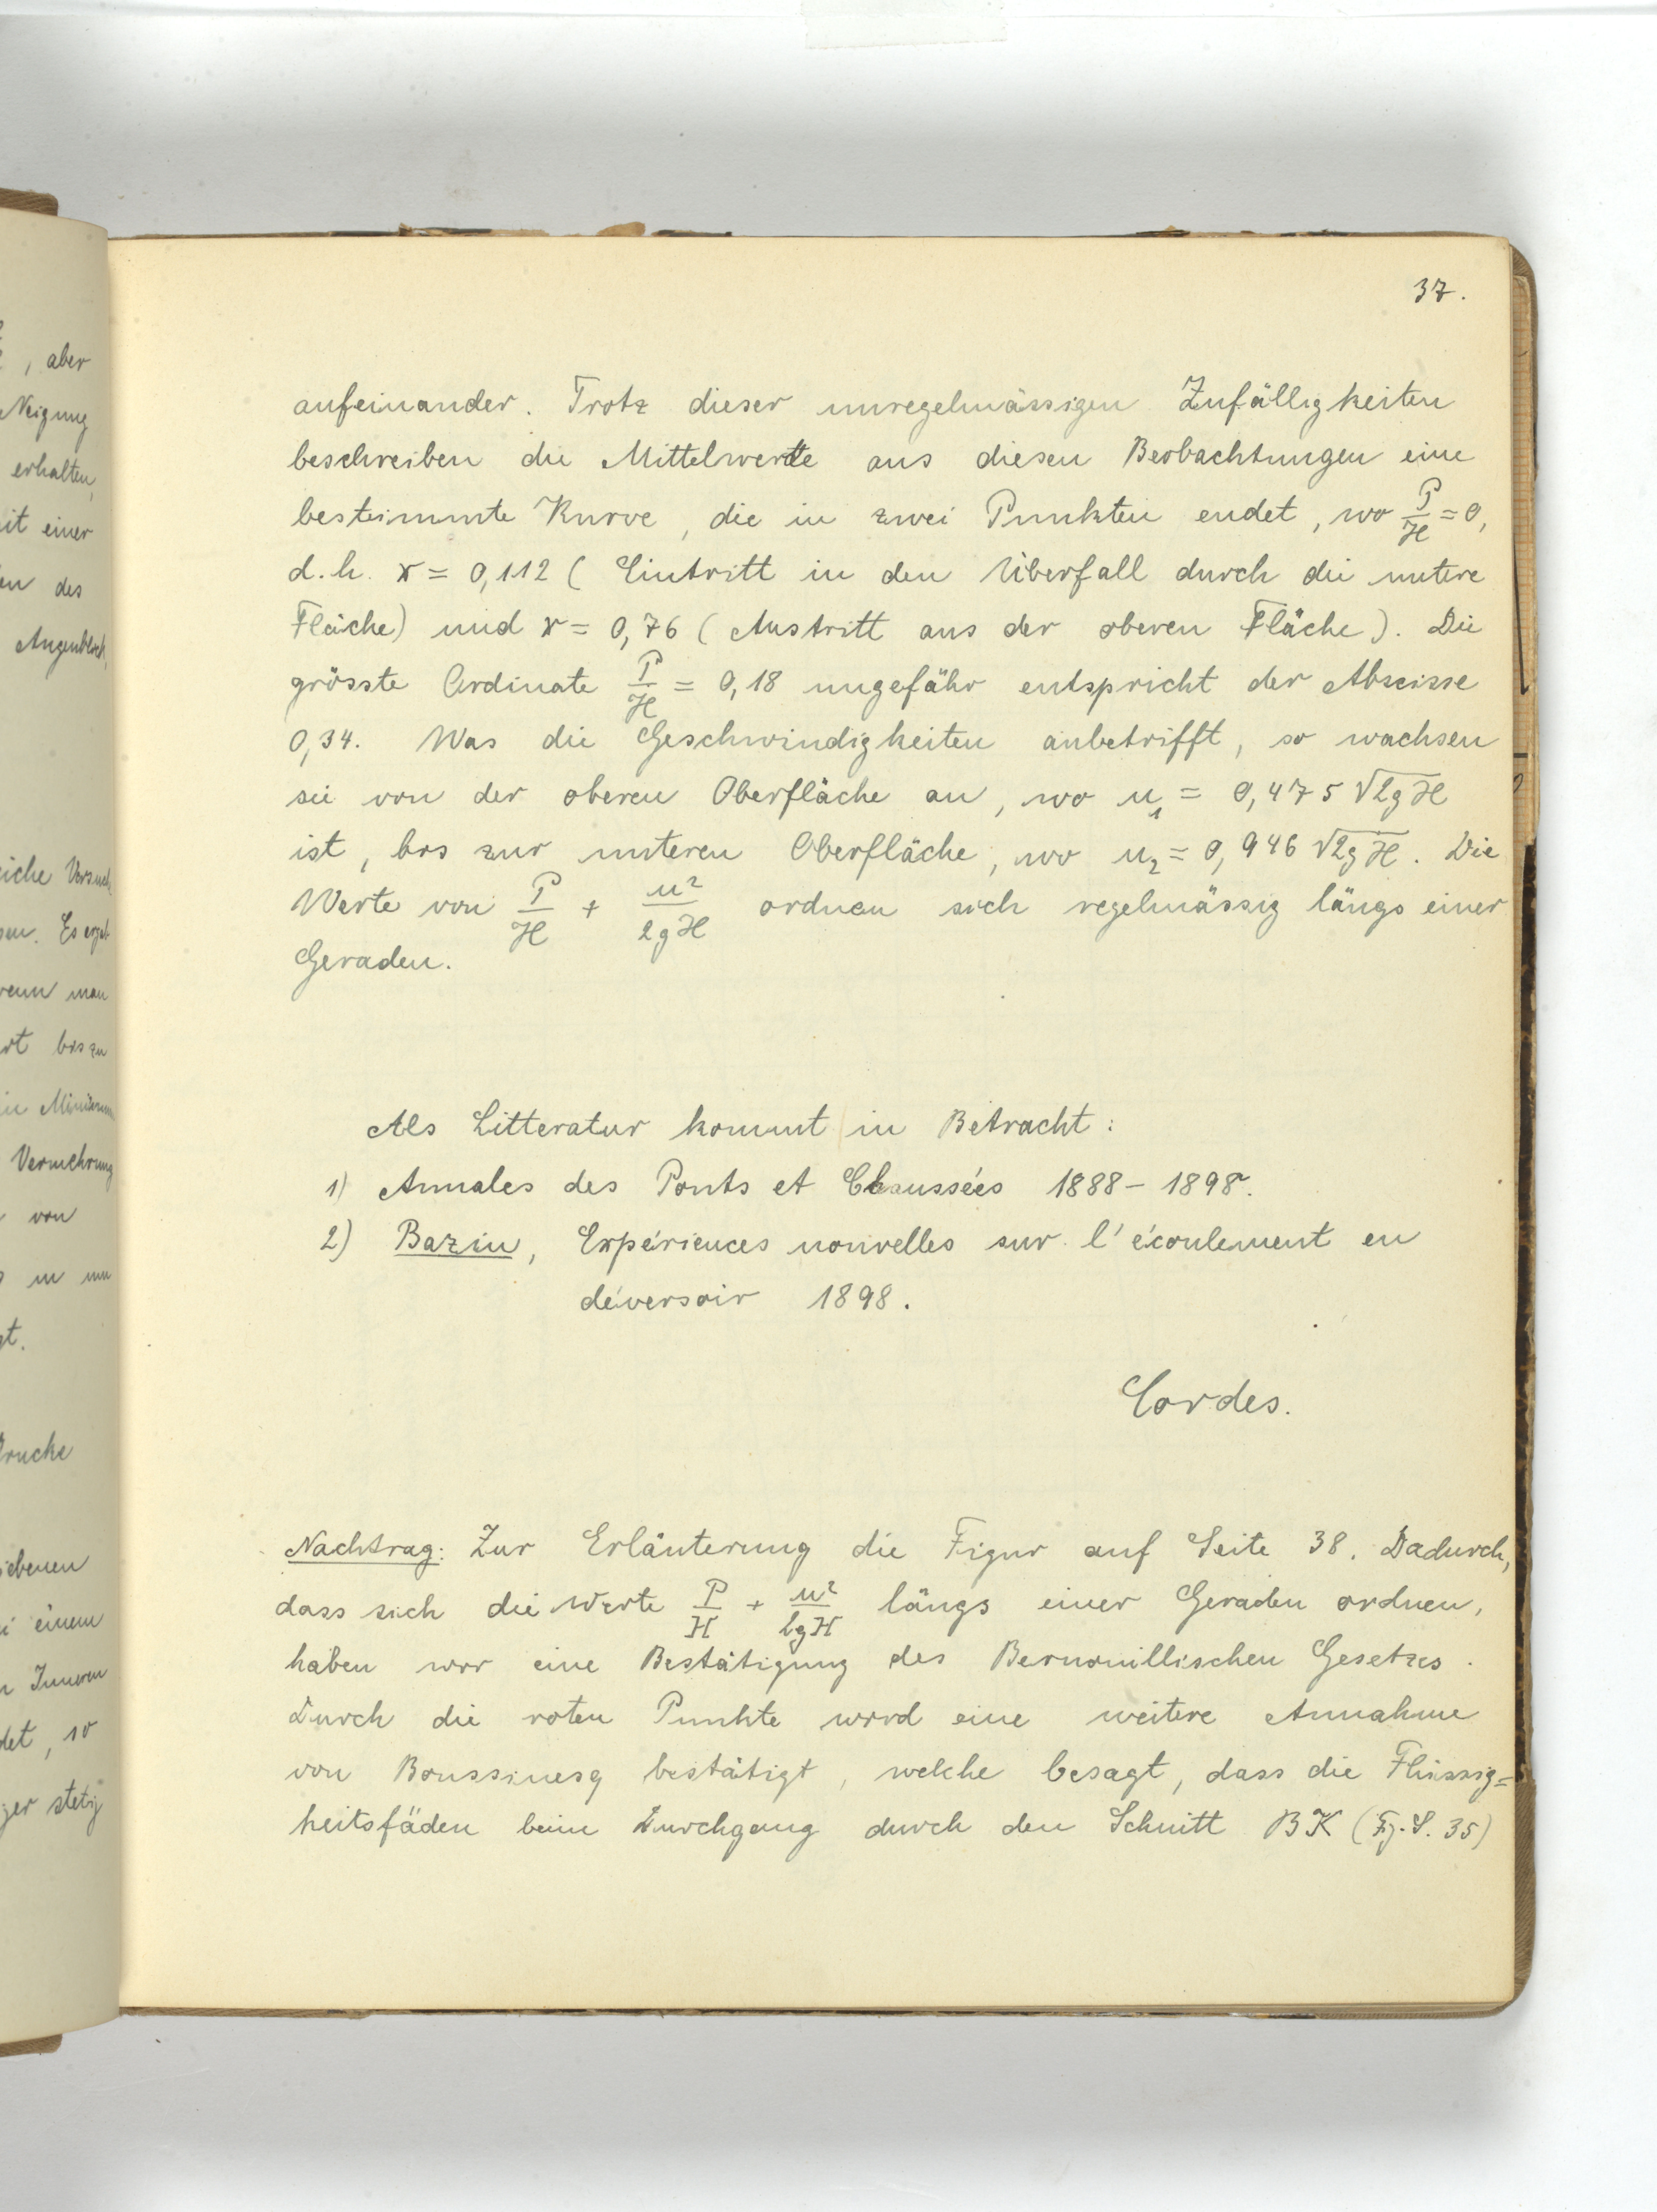 37.
aufeinander. Trotz dieser unregelmässigen Zufälligkeiten
beschreiben die Mittelwerte aus diesen Beobachtungen eine
bestimmte Kurve, die in zwei Punkten endet, wo P/H = 0,
d.h. x = 0,112 (Eintritt in den Überfall durch die untere
Fläche) und x = 0,76 (Austritt aus der oberen Fläche). Die
grösste Ordinate P/H = 0,18 ungefähr entspricht der Abscisse
0,34. Was die Geschwindigkeiten anbetrifft, so wachsen
sie von der oberen Oberfläche an, wo u₁ = 0,475 √2gH
ist, bis zur unteren Oberfläche, wo u₂ = 0,946 √2gH. Die
Werte von P/H + u²/2gH ordnen sich regelmässig längs einer
Geraden.
Als Litteratur kommt in Betracht:
1) Annales des Ponts et Chaussées 1888-1898.
2) Bazin, Expériences nouvelles sur l'écoulement en
déversoir 1898.
Cordes.
Nachtrag: Zur Erläuterung die Figur auf Seite 38. Dadurch,
dass sich die Werte P/H + u²/2gH längs einer Geraden ordnen,
haben wir eine Bestätigung des Bernouillischen Gesetzes.
Durch die roten Punkte wird eine weitere Annahme
von Boussinesq bestätigt, welche besagt, dass die Flüssig=
keitsfäden beim Durchgang durch den Schnitt BK (Fg. S. 35)
, aber
Neigung
erhalten,
einer
des
Augenblick,
man
bis zu
Vermehrung
von
in
einem
stetig